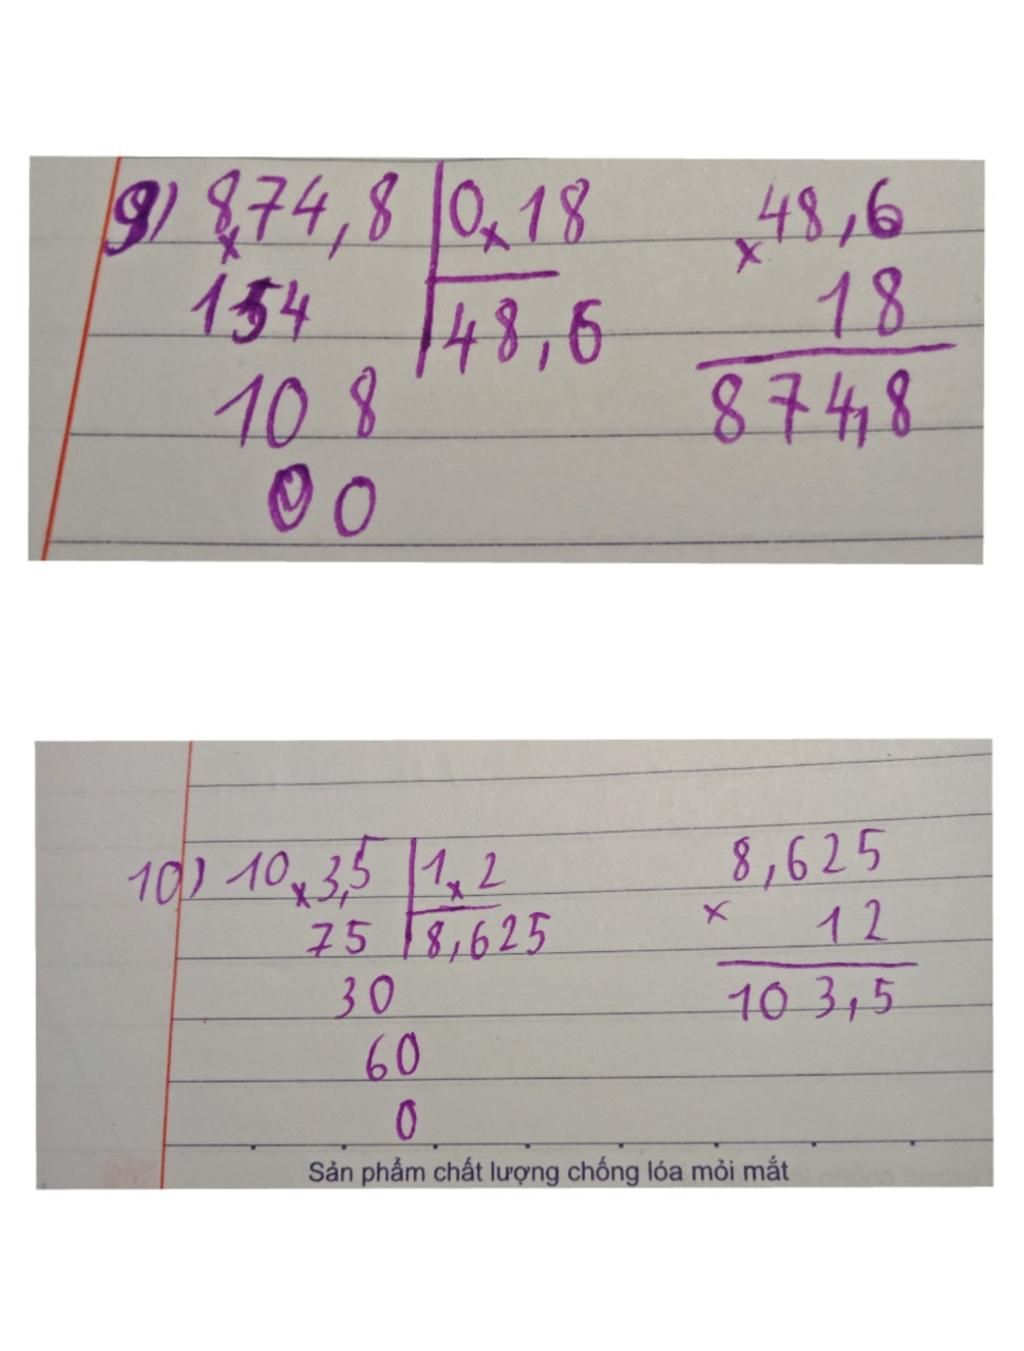 9) 8x74,8 | 0x18
154 | 48,6
10 8
00
48,6
x 18
874,8
10) 10x3,5 | 1x2
75 | 8,625
30
60
0
8,625
x 12
103,5
Sản phẩm chất lượng chống lóa mỏi mắt